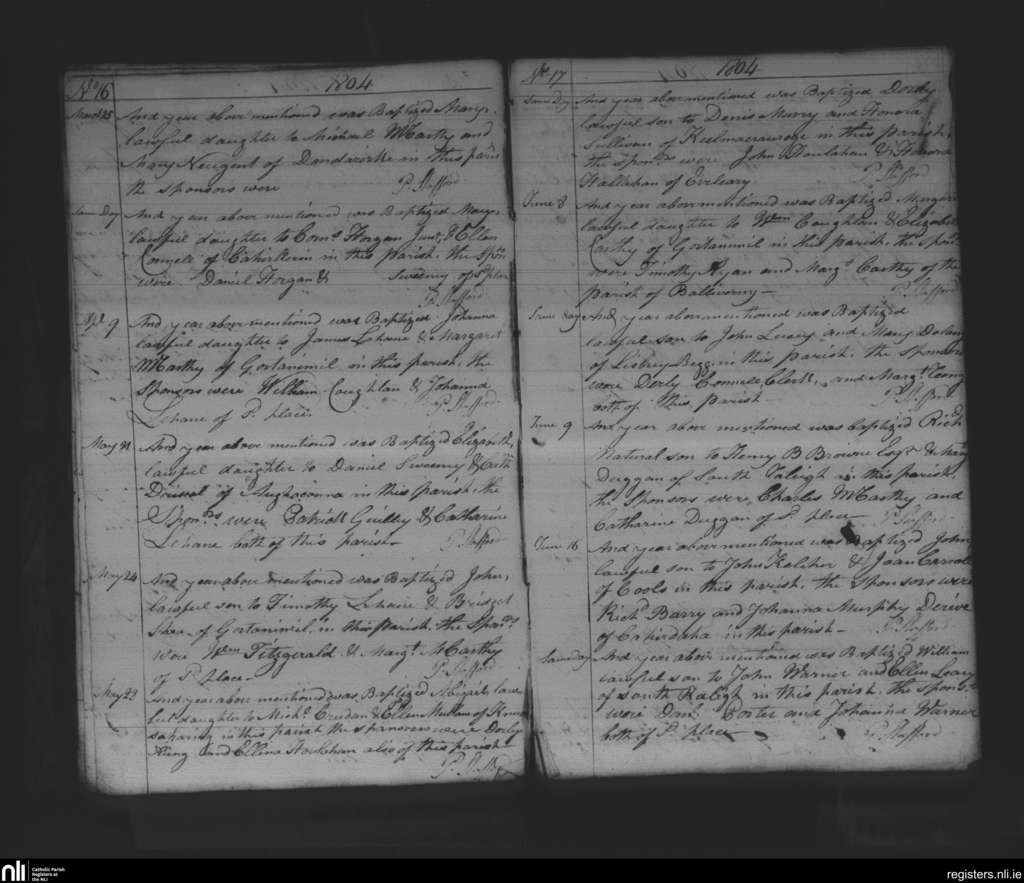 No 16
1804
March 25 And year above mentioned was Baptized Mary,
lawful daughter to Michael McCarthy and
Mary Neugent of in this parish
the sponsors were P. Stafford
Same Day And year above mentioned was Baptized Margt
lawful daughter to Corns Horgan Junr, & Ellen
Connell of Cahirkerin in this parish. the Sponrs
were Daniel Horgan & Sweeny of sd place
P. Stafford
Apl 9 And year above mentioned was Baptized Johanna
lawful daughter to James Lehane & Margaret
McCarthy of Gortanimil in this parish. the
Sponsors were William Coughlan & Johanna
Lehane of Sd place P. Stafford
May And year above mentioned was Baptized Elizabeth,
lawful daughter to Daniel Sweeny & Cath
Driscol of Aughacunna in this parish. the
Sponrs were Patrick & Catharine
Lehane both of this parish P. Stafford
May 24 And year above mentioned was Baptized John,
lawful son to Timothy Lehane & Bridget
Shea of Gortanimil in this Parish. the Sponrs
were Wm Fitzgerald & Margt McCarthy
of Sd place P. Stafford
May 23 And year above mentioned was Baptized Abigail, law
ful daughter to Michl Creedan & Ellen of
in this parish the sponsors were Darby
King and Ellena also of this parish
P. Stafford
No 17
1804
Same Day And year above mentioned was Baptized Darby
lawful son to Denis Murry and Honora
Sullivan of in this Parish,
the Sponrs were John Houlahan & Honora
Hallahan of P. Stafford
June 8 And year above mentioned was Baptized Margaret
lawful daughter to Wm Coughlan & Elizabeth
Carthy of Gortanimil in this parish. the Sponrs
were Timothy Ryan and Margt Carthy of the
parish of P. Stafford
Same day And year above mentioned was Baptized
lawful son to John Leary and Mary Delany
of Lisbuy Begg in this parish. the Sponsors
were Derby Connell, Clerk, and Margt
both of this parish P. Stafford
June 9 And year above mentioned was baptized Richd
Natural son to Henry B Browne Esqr & Mary
Duggan of South Raleigh in this parish.
the Sponsors were Charles McCarthy and
Catharine Duggan of Sd place P. Stafford
June 16 And year above mentioned was Baptized John
lawful son to John Kelliher & Joan Carroll
of Cools in this parish. the Sponsors were
Richd Barry and Johanna Murphy
of Cahirdaha in this parish P. Stafford
Same day And year above mentioned was Baptized William
lawful son to John Warner and Ellen Leary
of South Raligh in this parish the Sponrs
were Danl Porter and Johanna Warner
both of Sd place P. Stafford
nli
Catholic Parish
Registers at
the NLI
registers.nli.ie